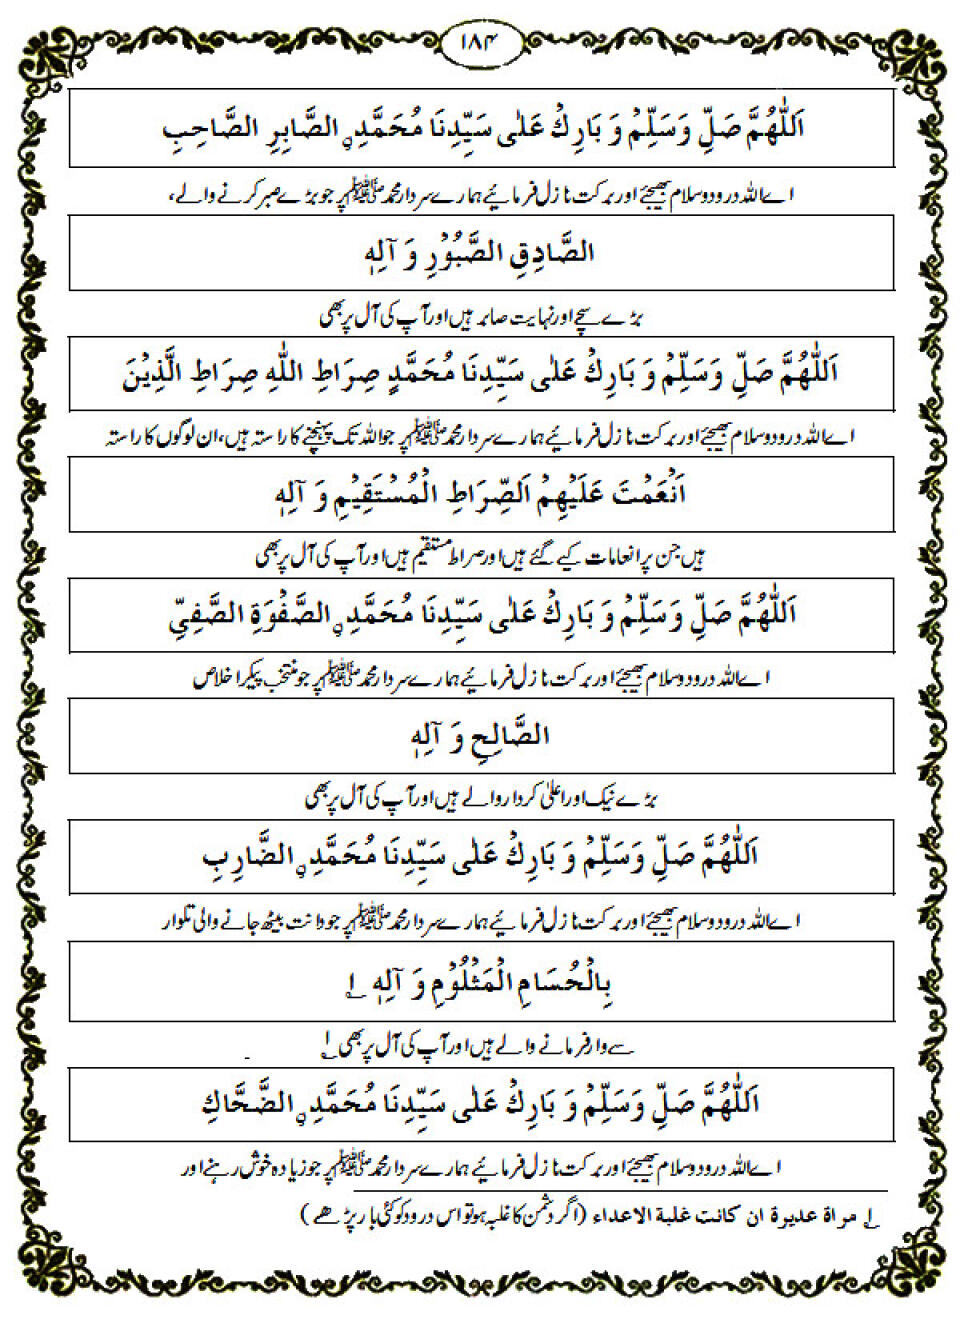 ۱۸۴
اَللّٰهُمَّ صَلِّ وَسَلِّمْ وَ بَارِكْ عَلٰى سَيِّدِنَا مُحَمَّدِ ۣ الصَّابِرِ الصَّاحِبِ
اے اللہ درود و سلام بھیجئے اور برکت نازل فرمائیے ہمارے سردار محمد ﷺ پر جو بڑے صبر کرنے والے،
الصَّادِقِ الصَّبُوْرِ وَ آلِهٖ
بڑے سچے اور نہایت صابر ہیں اور آپ کی آل پر بھی
اَللّٰهُمَّ صَلِّ وَسَلِّمْ وَ بَارِكْ عَلٰى سَيِّدِنَا مُحَمَّدٍ صِرَاطِ اللّٰهِ صِرَاطِ الَّذِيْنَ
اے اللہ درود و سلام بھیجئے اور برکت نازل فرمائیے ہمارے سردار محمد ﷺ پر جو اللہ تک پہنچنے کا راستہ ہیں، ان لوگوں کا راستہ
اَنْعَمْتَ عَلَيْهِمْ اَلصِّرَاطِ الْمُسْتَقِيْمِ وَ آلِهٖ
ہیں جن پر انعامات کیے گئے ہیں اور صراط مستقیم ہیں اور آپ کی آل پر بھی
اَللّٰهُمَّ صَلِّ وَسَلِّمْ وَ بَارِكْ عَلٰى سَيِّدِنَا مُحَمَّدِ ۣ الصَّفْوَةِ الصَّفِيِّ
اے اللہ درود و سلام بھیجئے اور برکت نازل فرمائیے ہمارے سردار محمد ﷺ پر جو منتخب پیکر اخلاص
الصَّالِحِ وَ آلِهٖ
بڑے نیک اور اعلیٰ کردار والے ہیں اور آپ کی آل پر بھی
اَللّٰهُمَّ صَلِّ وَسَلِّمْ وَ بَارِكْ عَلٰى سَيِّدِنَا مُحَمَّدِ ۣ الضَّارِبِ
اے اللہ درود و سلام بھیجئے اور برکت نازل فرمائیے ہمارے سردار محمد ﷺ پر جو دانت بیٹھ جانے والی تلوار
بِالْحُسَامِ الْمَثْلُوْمِ وَ آلِهٖ ؂۱
سے وار فرمانے والے ہیں اور آپ کی آل پر بھی ؂۱
اَللّٰهُمَّ صَلِّ وَسَلِّمْ وَ بَارِكْ عَلٰى سَيِّدِنَا مُحَمَّدِ ۣ الضَّحَّاكِ
اے اللہ درود و سلام بھیجئے اور برکت نازل فرمائیے ہمارے سردار محمد ﷺ پر جو زیادہ خوش رہنے اور
؂۱ مراة عديرة ان كانت غلبة الاعداء (اگر دشمن کا غلبہ ہو تو اس درود کو کئی بار پڑھے)